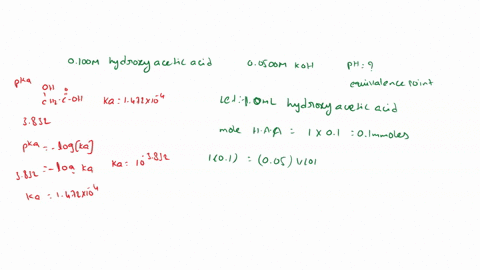 0.100M hydroxy acetic acid 0.0500M KOH pH = ?
equivalence point
pKa
OH O
CH2-C-OH Ka = 1.472×10^-4
3.832
pKa = -log[Ka]
3.832 = -log Ka Ka = 10^-3.832
Ka = 1.472×10^-4
1.0mL hydroxy acetic acid
mole H.A.A = 1 × 0.1 = 0.1mmoles
1(0.1) = (0.05) V(0)